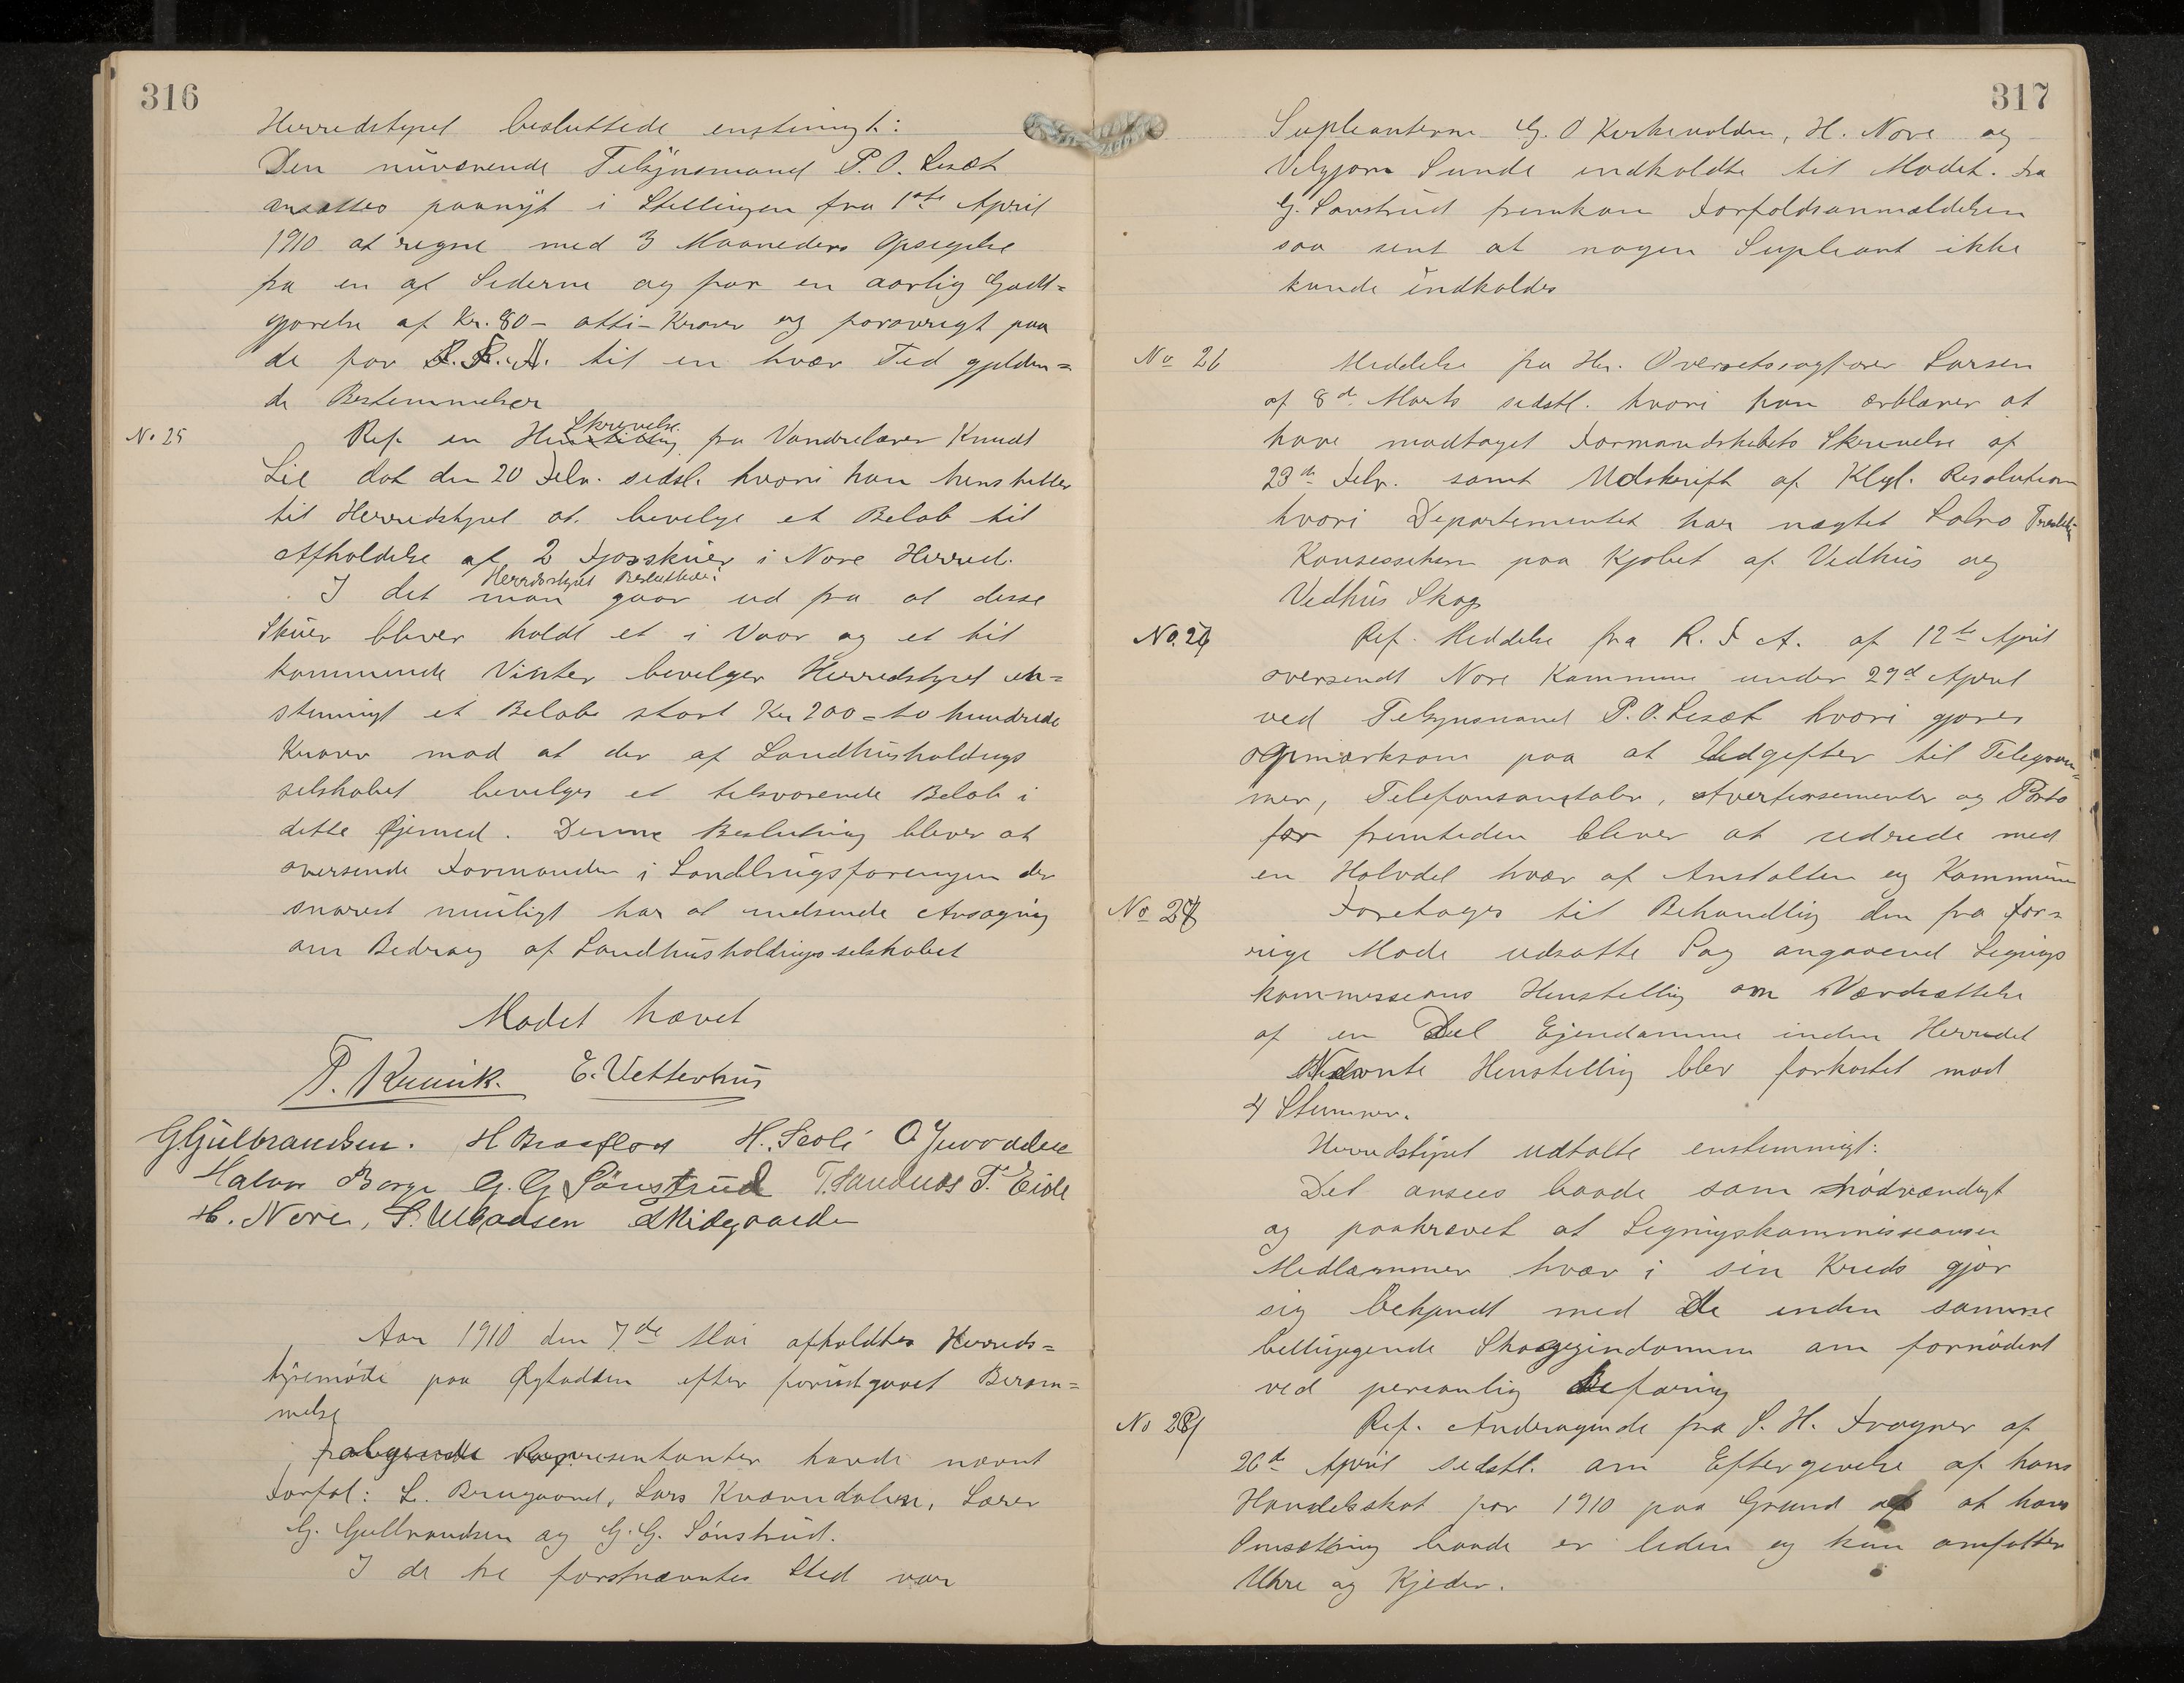 316
Herredstyret besluttede enstemigt:
Den nuværende Tilsynsmand P. O. Lisæt
ansattes paanyt i Stillingen fra 1ste April
1910 at regne med 3 Maaneders Opsigelse
fra en af Siderne og for en aarlig Godt=
gjørelse af Kr. 80 – otti – Kroner og forøvrigt paa
de for R. F. A. til en hvær Tid gjelden=
de Bestemmelser
No 25
Ref. en Skrivelse fra Vandrelærer Knudt
Lie dat den 20 Febr. sidstl. hvori han henstiller
til Herredstyret at bevelge et Beløb til
Afholdelse af 2 Fjøsskuer i Nore Herred.
Herredstyret Besluttede:
I det man gaar ud fra at disse
Skuer bliver holdt et i Vaar og et til
kommende Vinter bevelger Herredstyret en=
stemigt et Beløb stort Kr 200 = to hundrede
Kroner mod at der af Landhusholdnings
selskabet bevelges et tilsvarende Beløb i
dette Øjemed. Denne Beslutning bliver at
oversende Formanden i Landbrugsforeningen der
snarest muligt har at indsende Ansøgning
om Bedrag af Landhusholdingsselskabet
Mødet hævet
T. Kravik. E. Vetterhus
G. Gulbrandsen. H Braaflot H. Skoli O
Halvor Borge G. G Sønstrud T. Sandnes T. Eide
H. Nore, S. Ulbaasen Midgaarden
Aar 1910 den 7de Mai afholdtes Herreds=
tyremøde paa Øygladden efter forudgaaet Beram=
melse
følgende Representanter havde nævnt
Forfal: L. Brugaard, Lars Kværndalen, Lærer
G. Gulbrandsen og G. G. Sønstrud.
I de tre førstnævntes Sted var
317
Supleanterne G. O Kirkevolden, H. Nore og
Vebjørn Sunde indkaldte til Mødet. Fra
G. Sønstrud fremkom Forfaldsanmældelsen
saa sent at nogen Supleant ikke
kunde indkaldes
No 26
Meddelse fra Hr. Overretssagfører Larsen
af 8de Marts sidstl. hvori han ærklærer at
have modtaget Formandskabets Skrivelse af
23de Febr. samt Udskrift af Klgl. Resolution
hvori Departementet har nægtet
Konsessionen paa Kjøbet af Vedhus og
Vedhus Skog
No. 27
Ref. Meddelse fra R. F A. af 12te April
oversendt Nore Kommune under 29d April
ved Tilsynsmand P. O. Lisæt hvori gjøres
opmærksom paa at Udgifter til Telegram=
mer, Telefonsamtaler, Avertissementer og Porto
for fremtiden bliver at udrede med
en Halvdel hvær af Anstalten og Kommunen
No 28
Foretages til Behandling den fra for=
rige Møde udsatte Sag angaaend Ligings
kommissions Henstilling om Værdsættelse
af en Del Ejendomme inden Herredet
Nævnte Henstilling blev forkastet mod
4 Stemmer.
Herredstyret udtalte enstemmigt:
Det ansees baade som nødvændigt
og paakrævet at Ligningskommissionen
Medlæmmer hvær i sin Kreds gjør
sig bekjendt med de inden samme
beliggende Skogejendomme om fornødent
ved personlig Befaring
No 29
Ref. Andragende fra S. H. Frogner af
26de April sidstl. om Eftergivelse af hans
Handelsskat for 1910 paa Grund af at hans
Omsætning baade er liden og kun omfatter
Uhre og Kjeder.